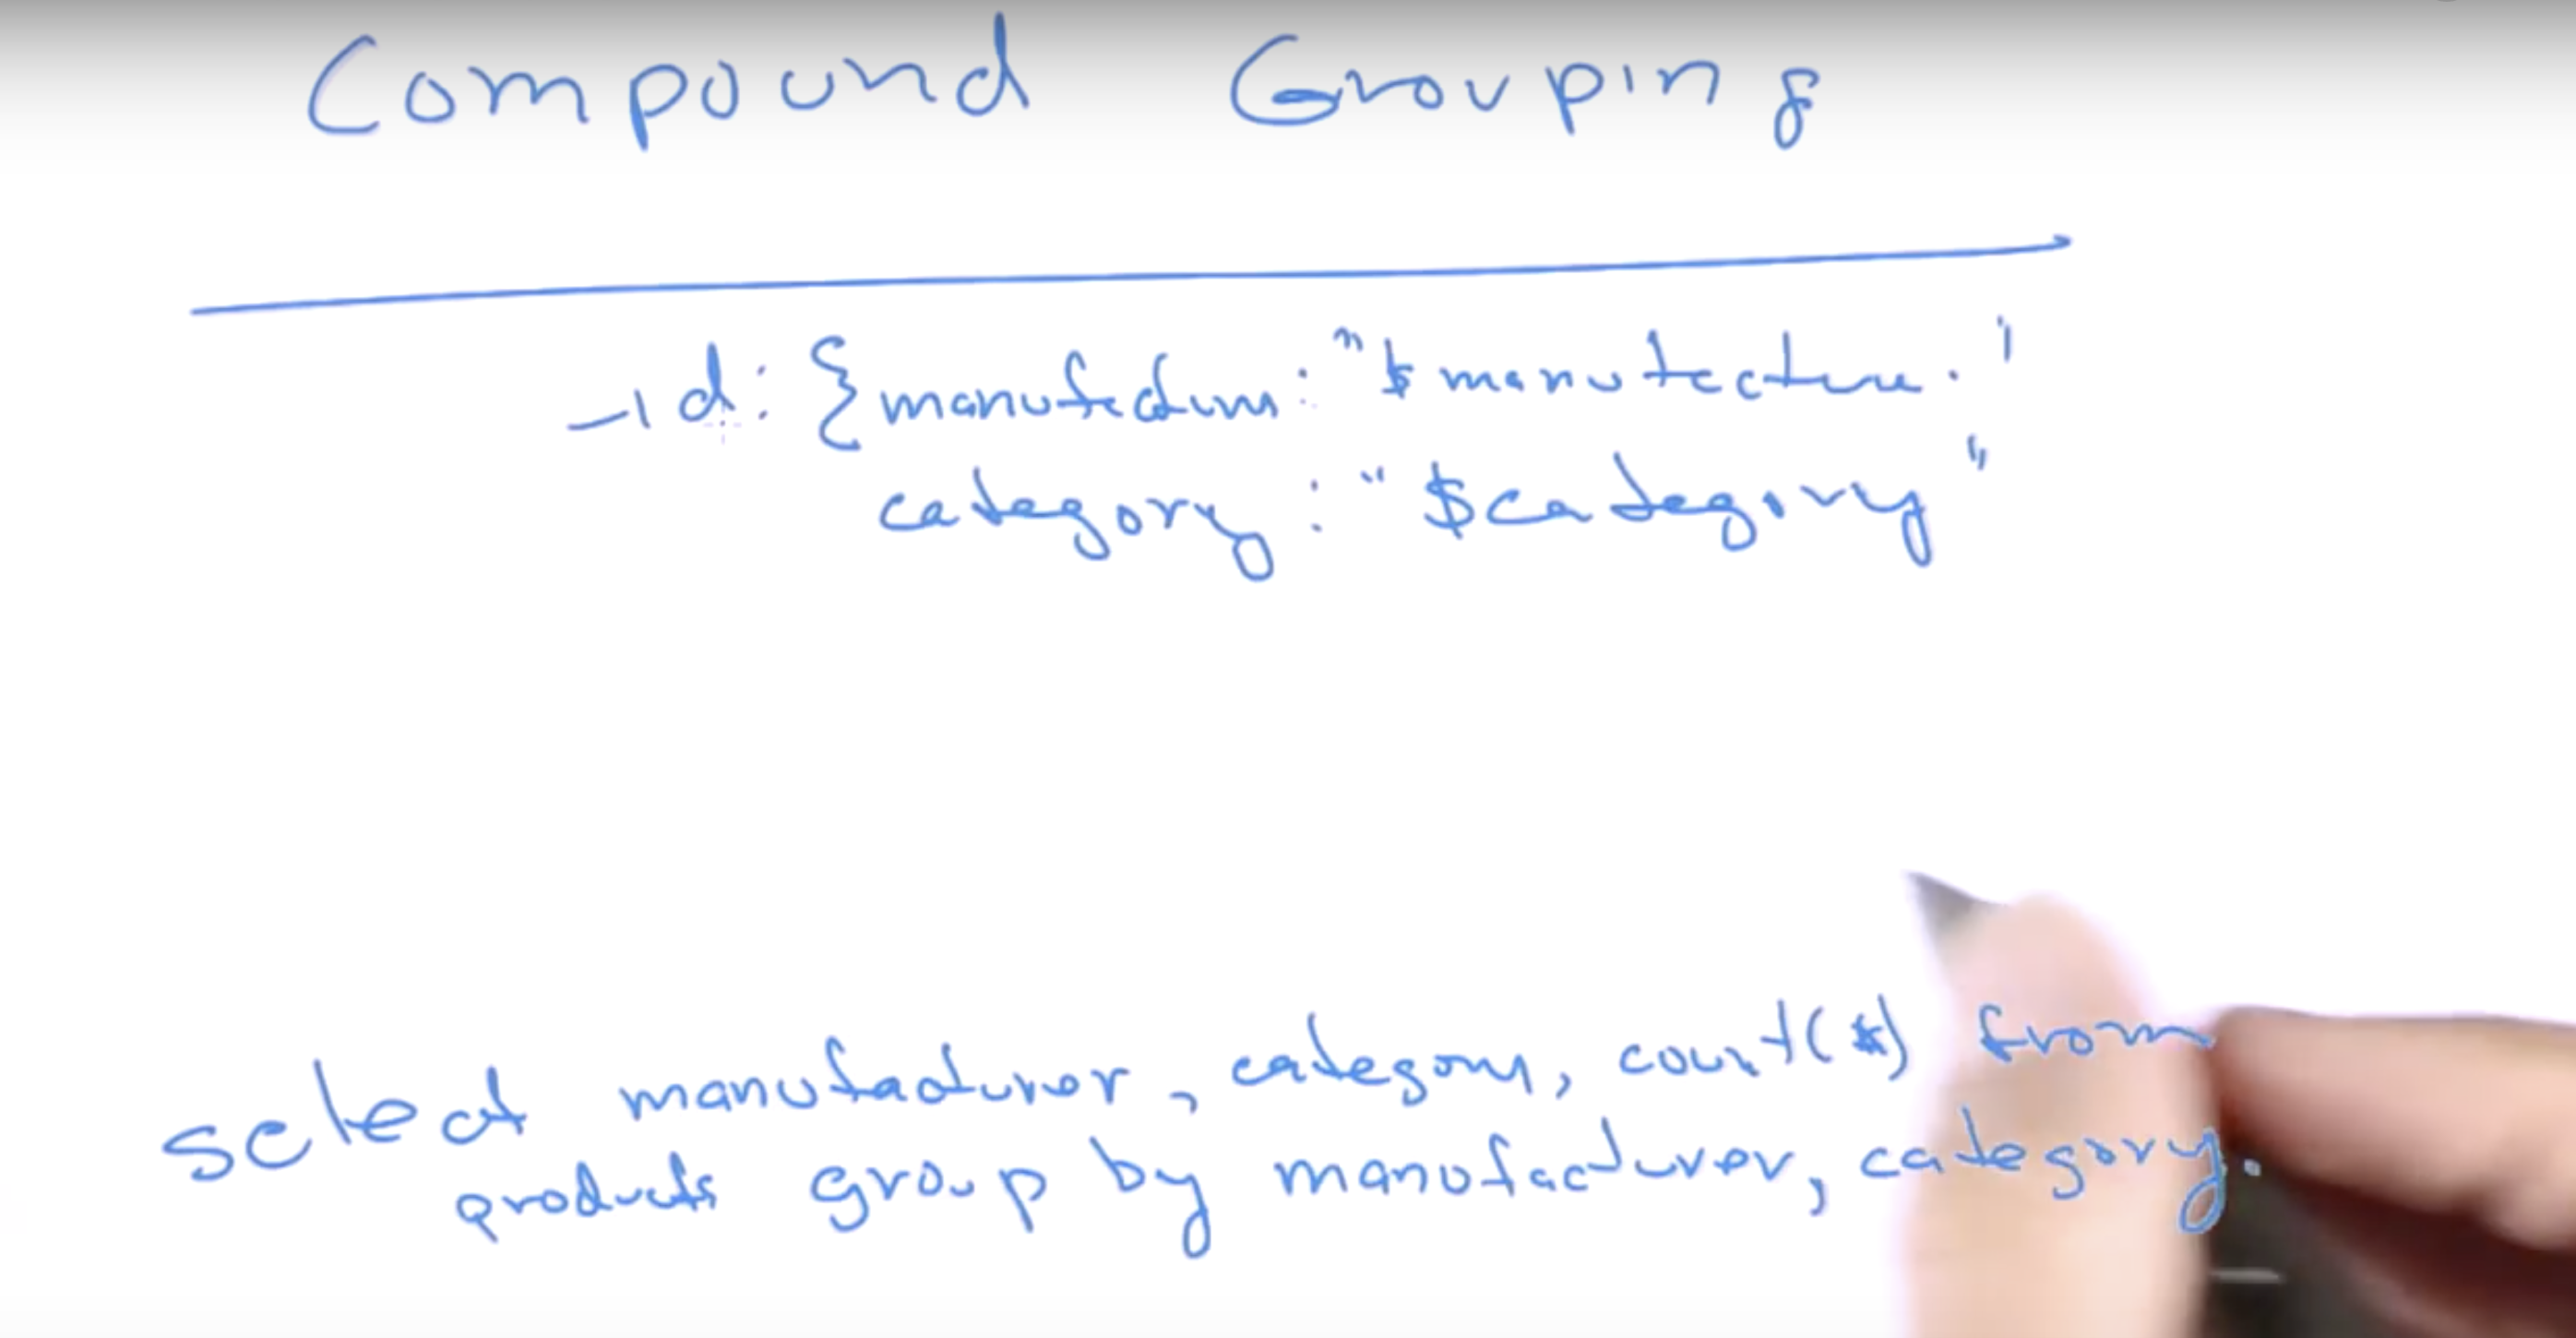 Compound Grouping
_id: {manufacturer: "$manufacturer"
category: "$category"
select manufacturer, category, count(*) from
products group by manufacturer, category.